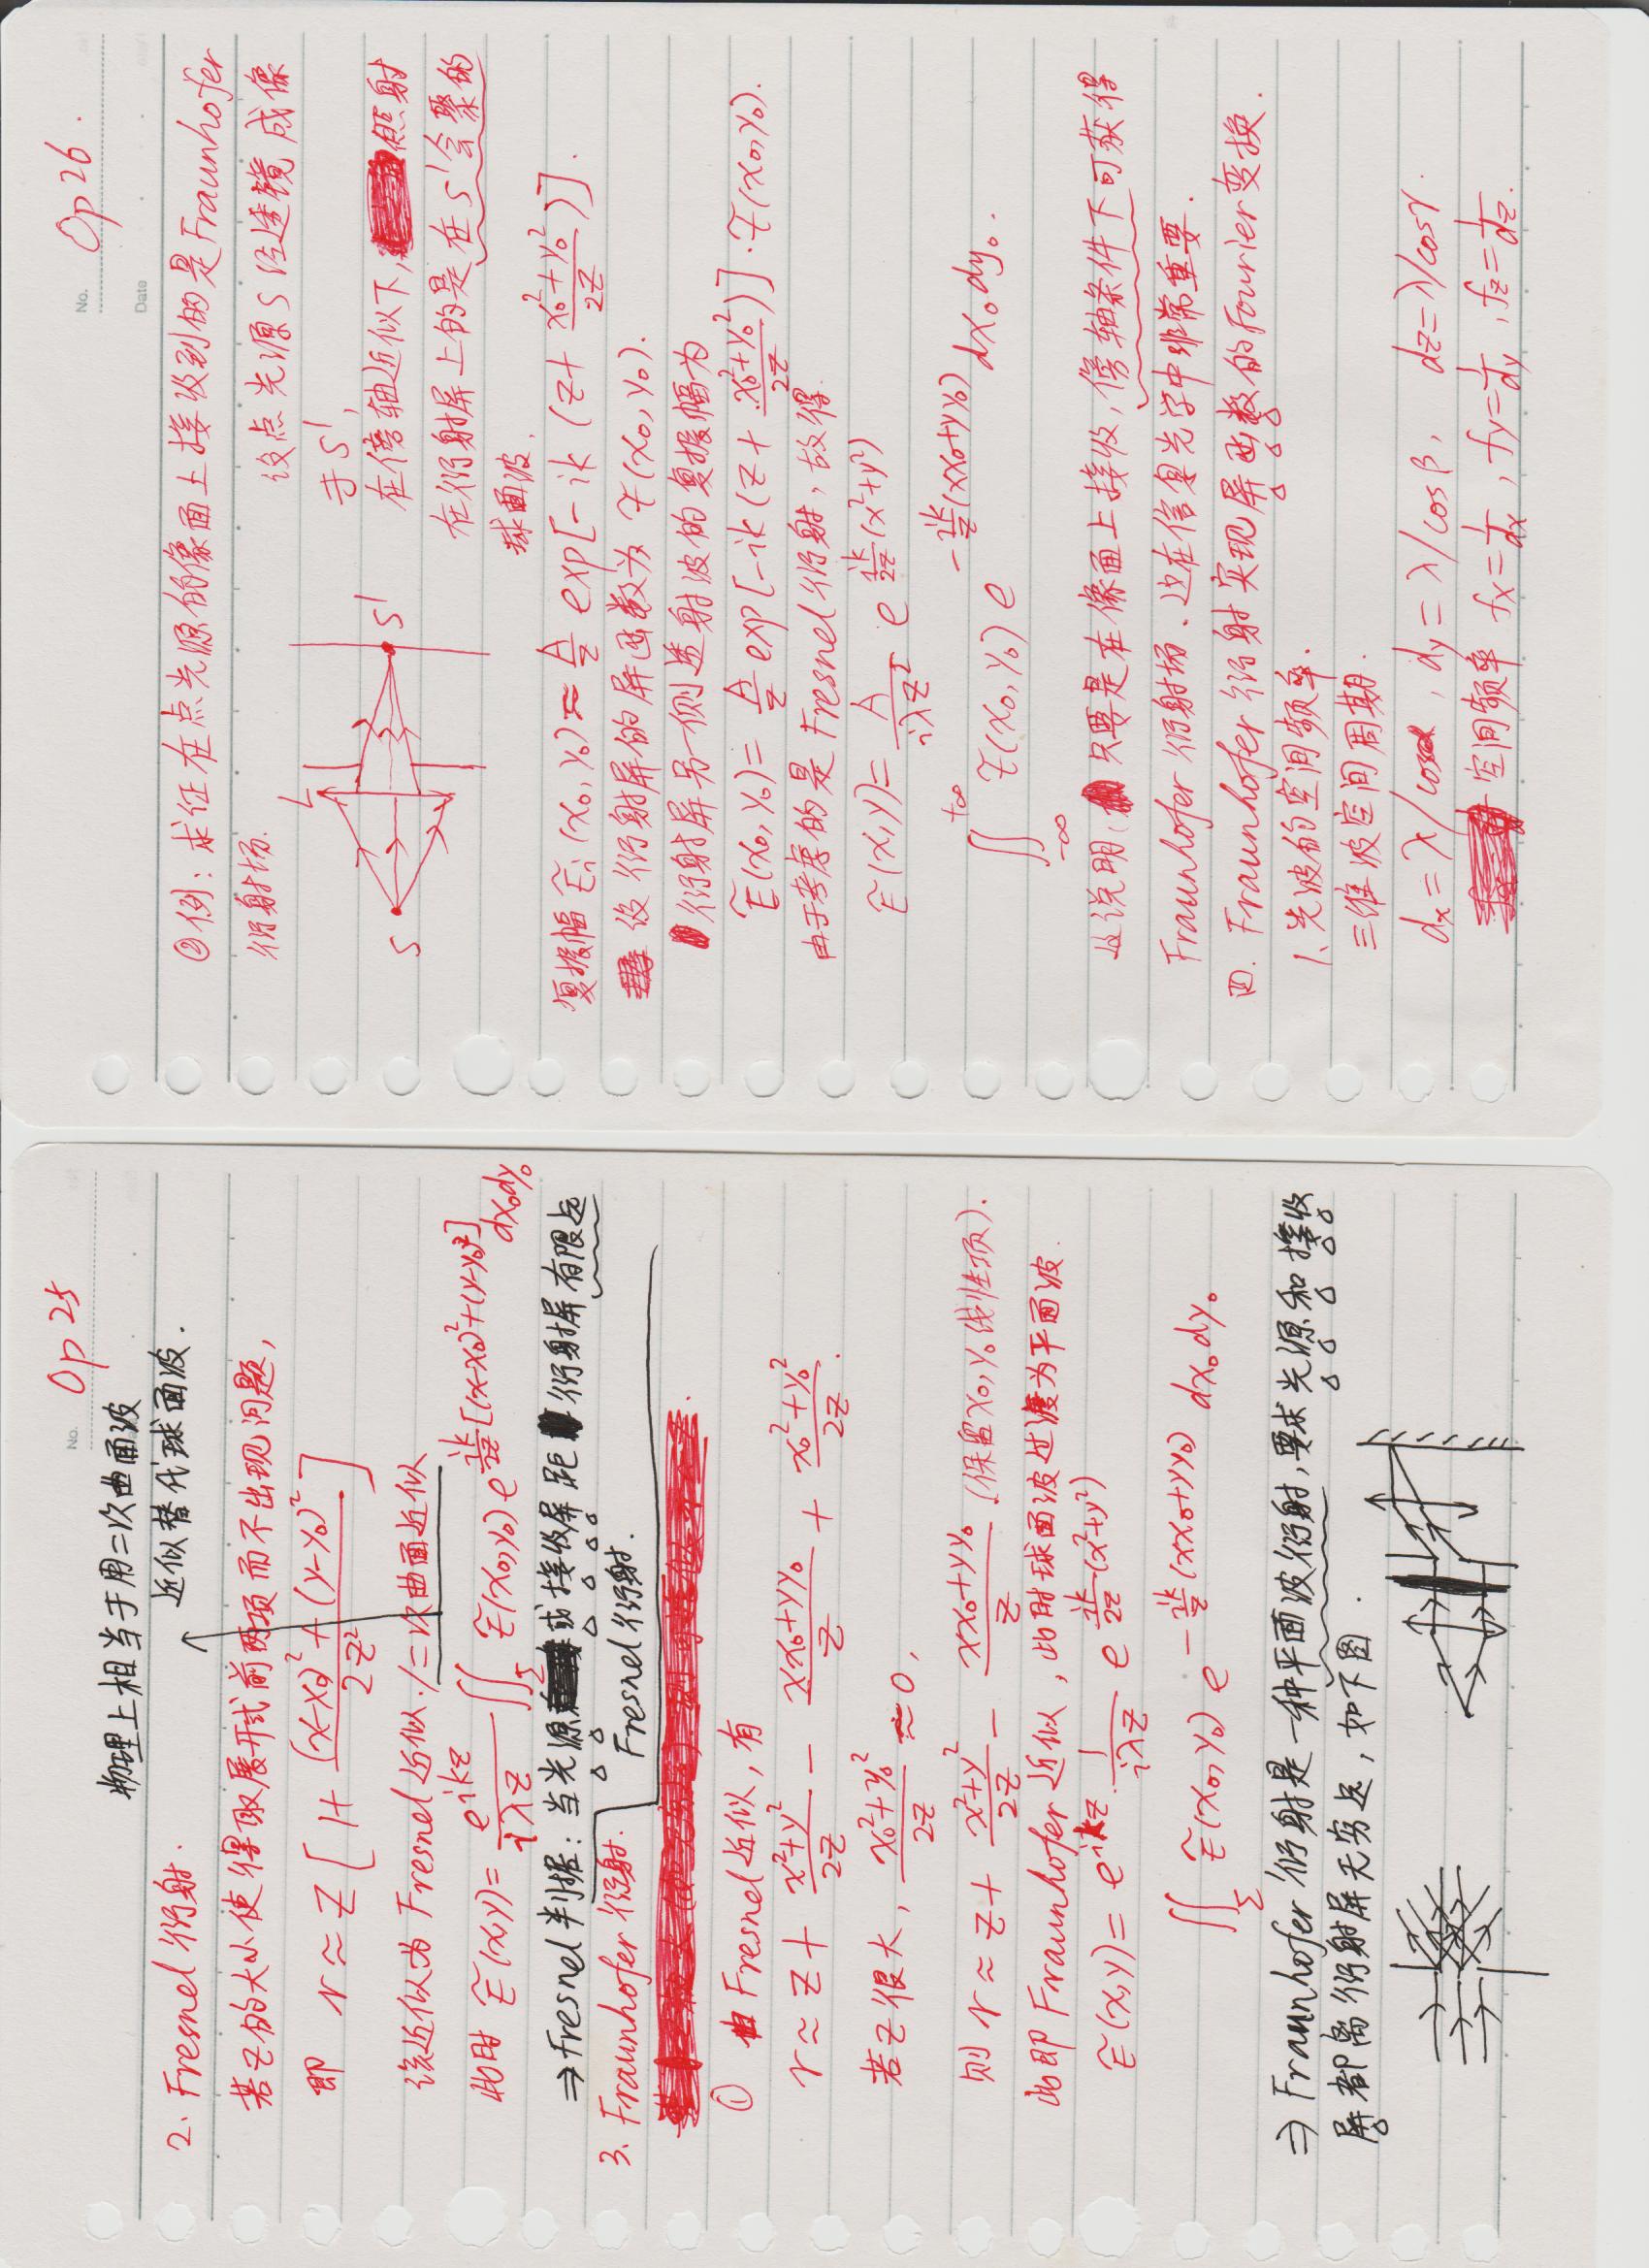 No. Op 25
物理上相当于用二次曲面波
近似替代球面波.
2. Fresnel 衍射.
若z的大小使得取展开式前两项而不出现问题,
即 r ≈ z [ 1 + ((x-x₀)² + (y-y₀)²) / 2z² ]
该近似为 Fresnel 近似. / 二次曲面近似
此时 Ẽ(x,y) = e^{ikz} / iλz ∬_Σ Ẽ(x₀,y₀) e^{ik/2z [(x-x₀)²+(y-y₀)²]} dx₀dy₀
⇒ Fresnel 判据: 当光源或接收屏距衍射屏有限远
Fresnel 衍射.
3. Fraunhofer 衍射.
① 由 Fresnel 近似, 有
r ≈ z + (x²+y²)/2z - (xx₀+yy₀)/z + (x₀²+y₀²)/2z.
若z很大, (x₀²+y₀²)/2z ≈ 0,
则 r ≈ z + (x²+y²)/2z - (xx₀+yy₀)/z (保留x₀,y₀线性项).
此即 Fraunhofer 近似, 此时球面波过渡为平面波.
Ẽ(x,y) = e^{ikz} · 1/iλz e^{ik/2z (x²+y²)}
∬_Σ Ẽ(x₀,y₀) e^{-ik/z (xx₀+yy₀)} dx₀dy₀
⇒ Fraunhofer 衍射是一种平面波衍射, 要求光源和接收
屏都离衍射屏无穷远, 如下图.
No. Op 26.
Date
② 例: 求证在点光源的像面上接收到的是Fraunhofer
衍射场.
设点光源S经透镜成像
于S′,
L
S
S′
在傍轴近似下, 照射
在衍射屏上的是在S′会聚的
球面波.
复振幅 Ẽᵢ(x₀,y₀) ≈ A/z exp[-ik (z + (x₀²+y₀²)/2z)].
设衍射屏的屏函数为 t̃(x₀,y₀).
衍射屏另一侧透射波的复振幅为
Ẽ(x₀,y₀) = A/z exp[-ik (z + (x₀²+y₀²)/2z)] · t̃(x₀,y₀).
由于考虑的是Fresnel衍射, 故得
Ẽ(x,y) = A/iλz² e^{ik/2z (x²+y²)}
∬_{-∞}^{+∞} t̃(x₀,y₀) e^{-ik/z (xx₀+yy₀)} dx₀dy₀.
这说明, 只要是在像面上接收, 傍轴条件下可获得
Fraunhofer 衍射场. 这在信息光学中非常重要.
四. Fraunhofer 衍射实现屏函数的Fourier变换.
1. 光波的空间频率.
三维波空间周期.
dx = λ/cosα, dy = λ/cosβ, dz = λ/cosγ.
空间频率 fx = 1/dx, fy = 1/dy, fz = 1/dz.